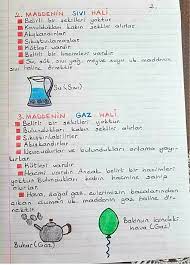 2.
2. MADDENİN SIVI HALİ
Belirli bir şekilleri yoktur.
Konuldukları kabın şeklini alırlar.
Akışkandırlar.
Sıkıştırılamazlar.
Kütleleri vardır.
Belirli bir hacimleri vardır.
Su, süt, sıvı yağ, meyve suyu vb. maddenin sıvı
haline örnektir.
Su (Sıvı)
3. MADDENİN GAZ HALİ
Belirli bir şekilleri yoktur.
Bulundukları kabın şeklini alırlar.
Sıkıştırılabilirler.
Akışkandırlar.
Uçucudurlar ve bulundukları ortama yayı-
lırlar.
Kütlesi vardır.
Hacmi vardır. Ancak belirli bir hacimleri
yoktur. Bulundukları kabın hacmine sahip
olurlar.
Hava, doğal gaz, evlerimizin bacalarından
çıkan duman vb. maddenin gaz haline ör-
nektir.
Buhar (Gaz)
Balonun içindeki
hava (Gaz)